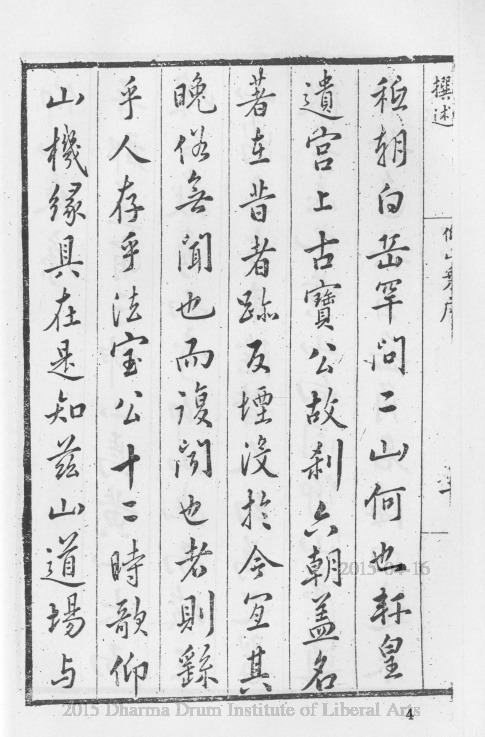 撰述
祖朝白岳罕問二山何也軒皇
遺宮上古寶公故剎六朝蓋名
著在昔者跡反堙沒於今宜其
晚俗無聞也而複聞也者則繇
乎人存乎法寶公十二時歌仰
山機緣具在是知茲山道場与
2015-04-16
2015 Dharma Drum Institute of Liberal Arts
4